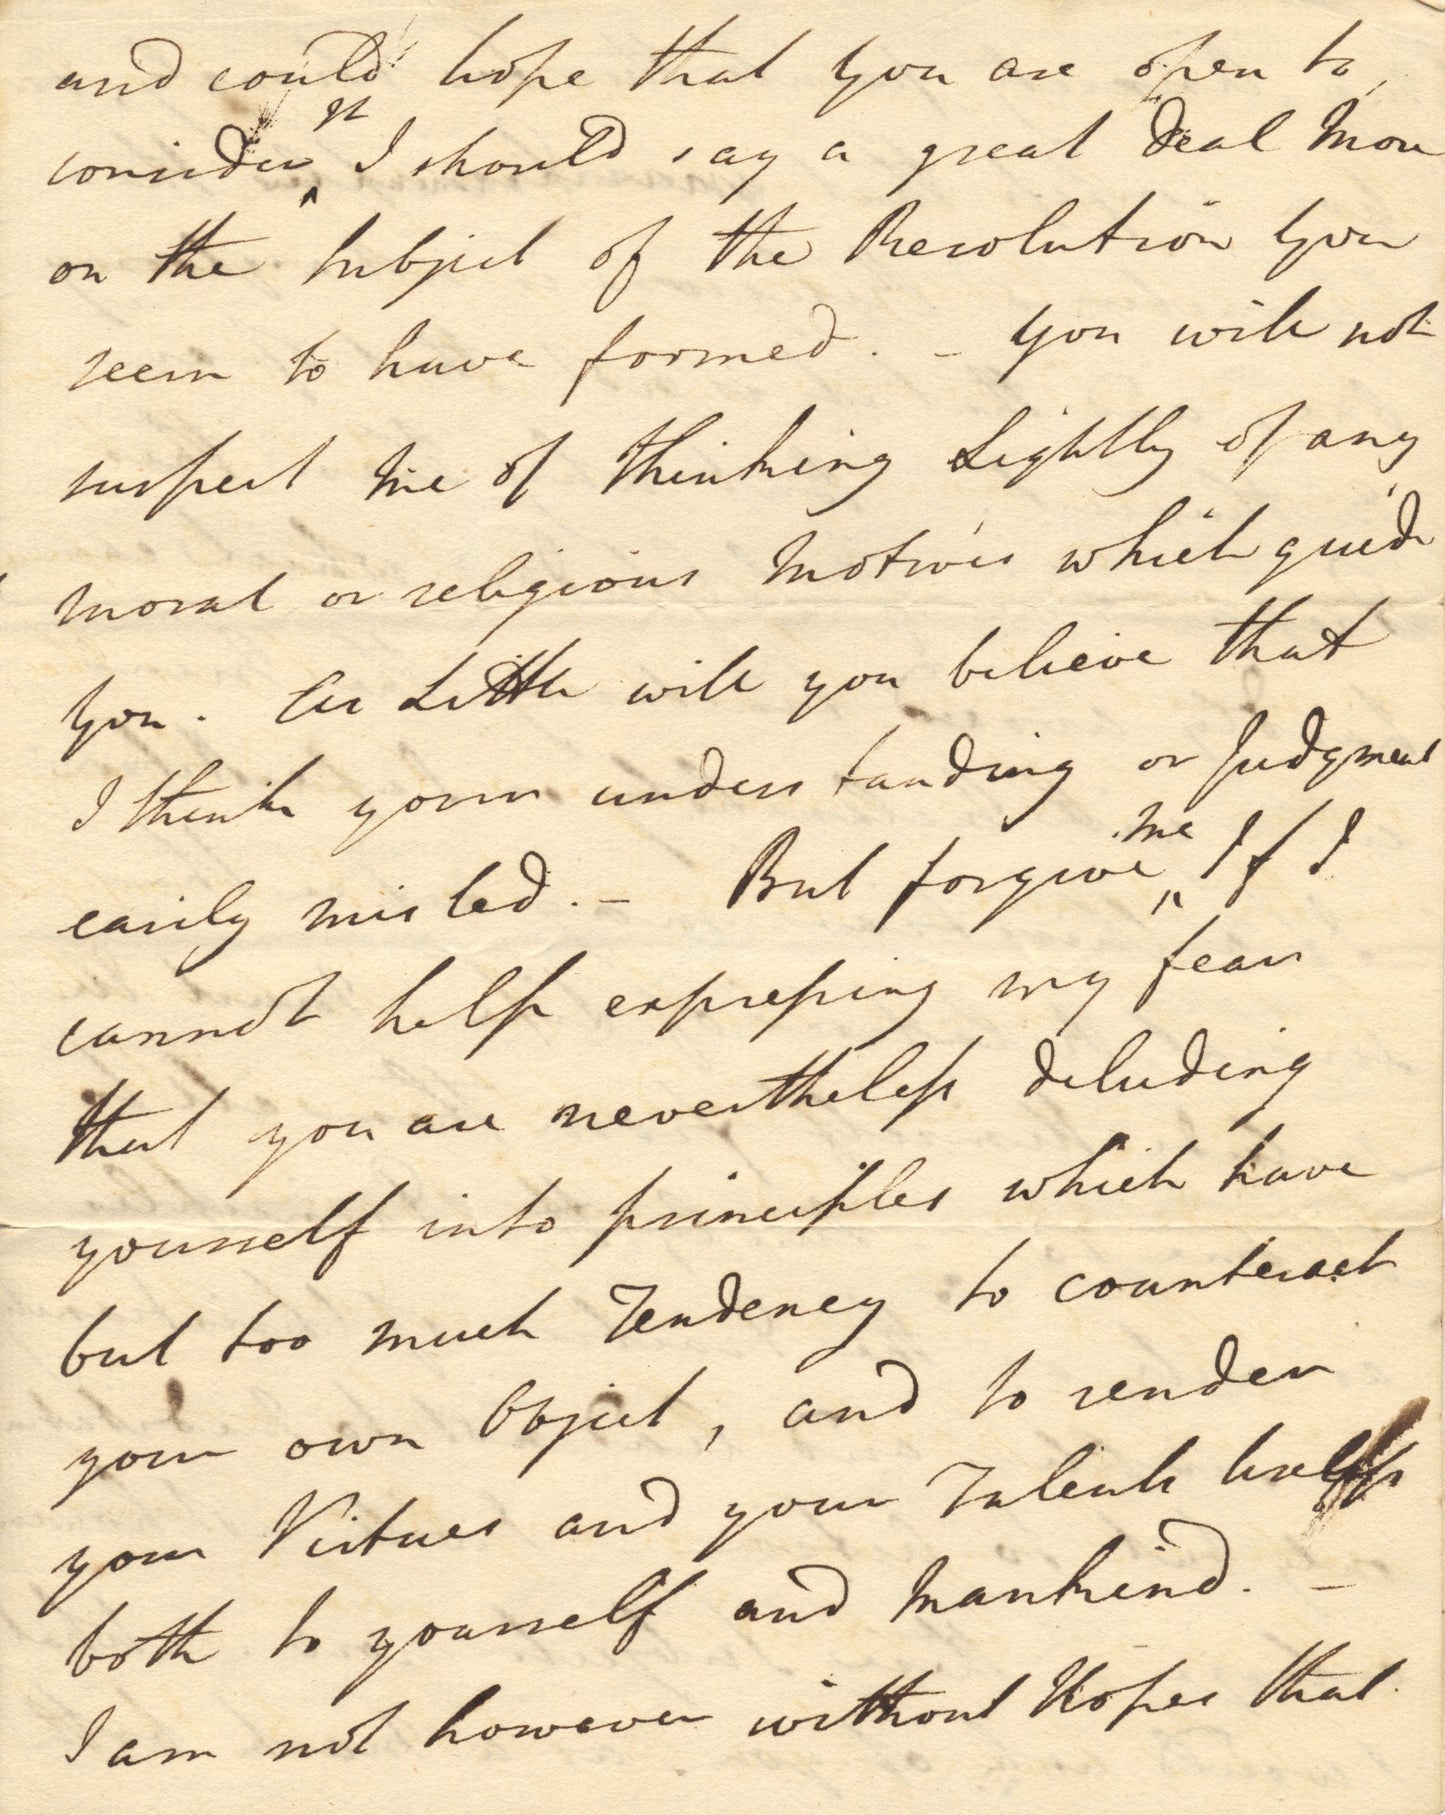 and could hope that you are open to
consider it I should say a great deal more
on the Subject of the Resolution you
seem to have formed. - You will not
suspect me of thinking Lightly of any
moral or religious motives which guide
you. As Little will you believe that
I think your understanding or Judgment
easily misled. - But forgive me If I
cannot help expressing my fears
that you are nevertheless deluding
yourself into principles which have
but too much Tendency to counteract
your own Object, and to render
your Virtues and your Talents useless
both to yourself and Mankind. -
I am not however without Hopes that